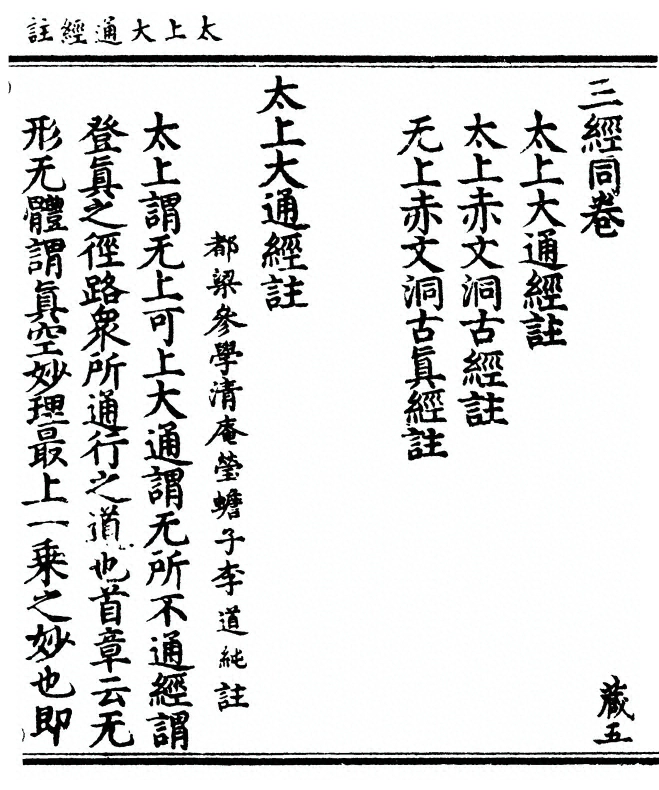 太上大通經註
三經同卷
藏五
太上大通經註
太上赤文洞古經註
无上赤文洞古眞經註
太上大通經註
都梁參學清庵瑩蟾子李道純註
太上謂无上可上大通謂无所不通經謂
登眞之徑路衆所通行之道也首章云无
形无體謂眞空妙理最上一乘之妙也即